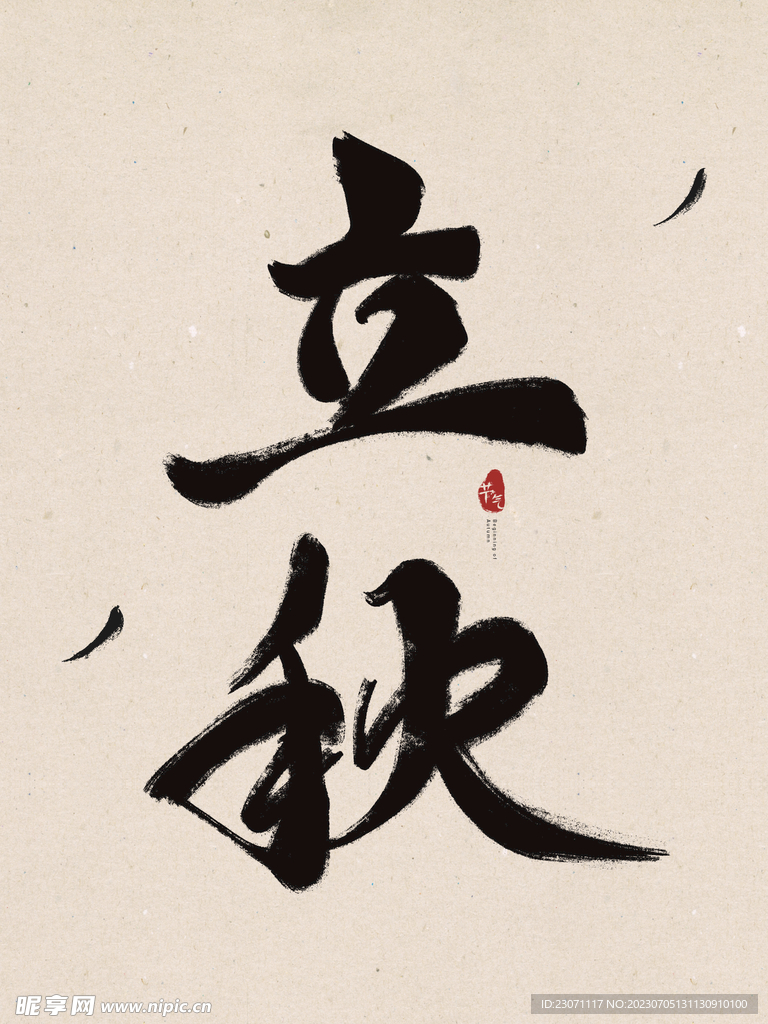 立
秋
节气
Beginning of
Autumn
昵享网 www.nipic.cn
ID:23071117 NO:20230705131130910100